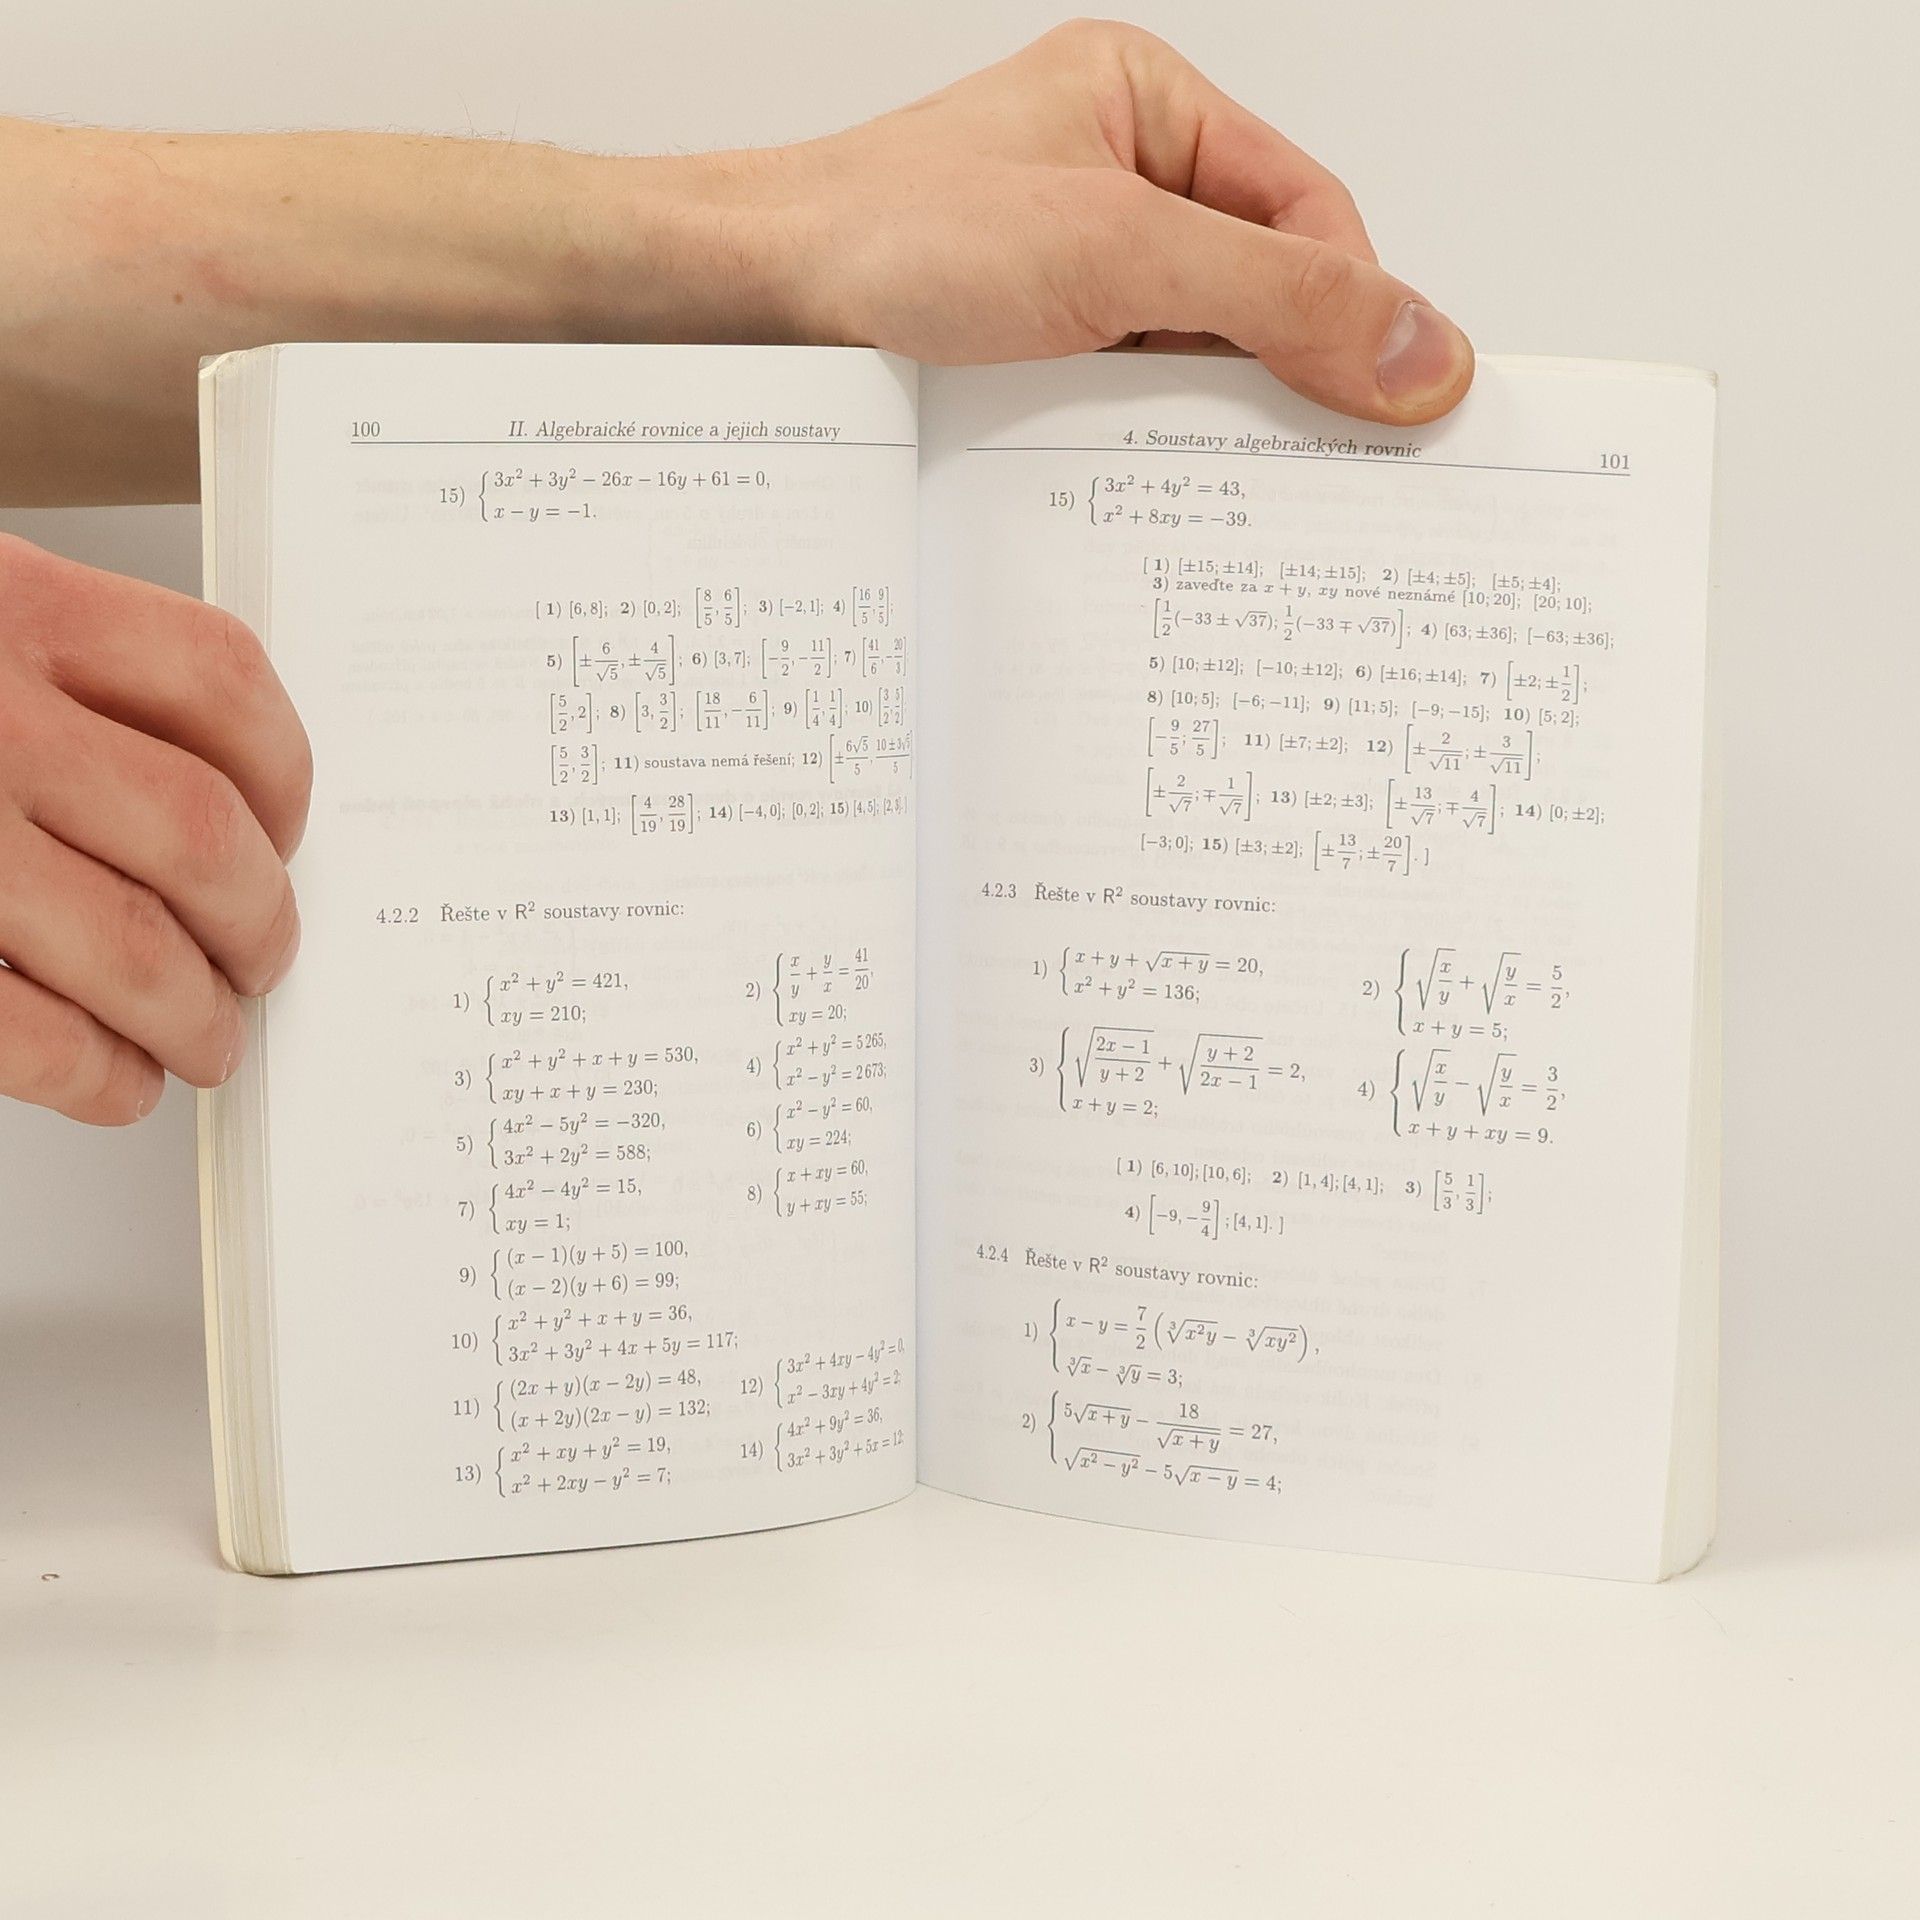 100 II. Algebraické rovnice a jejich soustavy
15) { 3x² + 3y² − 26x − 16y + 61 = 0,
x − y = −1.
[ 1) [6, 8]; 2) [0, 2]; [8/5, 6/5]; 3) [−2, 1]; 4) [16/5, 9/5];
5) [±6/√5, ±4/√5]; 6) [3, 7]; [−9/2, −11/2]; 7) [41/6, −20/3]
[5/2, 2]; 8) [3, 3/2]; [18/11, −6/11]; 9) [1/4, 1/4]; 10) [3/2, 5/2];
[5/2, 3/2]; 11) soustava nemá řešení; 12) [±6√5/5, 10±3√5/5]
13) [1, 1]; [4/19, 28/19]; 14) [−4, 0]; [0, 2]; 15) [4, 5]; [2, 3]. ]
4.2.2 Řešte v R² soustavy rovnic:
1) { x² + y² = 421,
xy = 210;
2) { x/y + y/x = 41/20,
xy = 20;
3) { x² + y² + x + y = 530,
xy + x + y = 230;
4) { x² + y² = 5 265,
x² − y² = 2 673;
5) { 4x² − 5y² = −320,
3x² + 2y² = 588;
6) { x² − y² = 60,
xy = 224;
7) { 4x² − 4y² = 15,
xy = 1;
8) { x + xy = 60,
y + xy = 55;
9) { (x − 1)(y + 5) = 100,
(x − 2)(y + 6) = 99;
10) { x² + y² + x + y = 36,
3x² + 3y² + 4x + 5y = 117;
11) { (2x + y)(x − 2y) = 48,
(x + 2y)(2x − y) = 132;
12) { 3x² + 4xy − 4y² = 0,
x² − 3xy + 4y² = 2;
13) { x² + xy + y² = 19,
x² + 2xy − y² = 7;
14) { 4x² + 9y² = 36,
3x² + 3y² + 5x = 12;
4. Soustavy algebraických rovnic 101
15) { 3x² + 4y² = 43,
x² + 8xy = −39.
[ 1) [±15; ±14]; [±14; ±15]; 2) [±4; ±5]; [±5; ±4];
3) zaveďte za x + y, xy nové neznámé [10; 20]; [20; 10];
[1/2(−33 ± √37); 1/2(−33 ∓ √37)]; 4) [63; ±36]; [−63; ±36];
5) [10; ±12]; [−10; ±12]; 6) [±16; ±14]; 7) [±2; ±1/2];
8) [10; 5]; [−6; −11]; 9) [11; 5]; [−9; −15]; 10) [5; 2];
[−9/5; 27/5]; 11) [±7; ±2]; 12) [±2/√11; ±3/√11];
[±2/√7; ∓1/√7]; 13) [±2; ±3]; [±13/√7; ∓4/√7]; 14) [0; ±2];
[−3; 0]; 15) [±3; ±2]; [±13/7; ±20/7]. ]
4.2.3 Řešte v R² soustavy rovnic:
1) { x + y + √(x + y) = 20,
x² + y² = 136;
2) { √(x/y) + √(y/x) = 5/2,
x + y = 5;
3) { √((2x − 1)/(y + 2)) + √((y + 2)/(2x − 1)) = 2,
x + y = 2;
4) { √(x/y) − √(y/x) = 3/2,
x + y + xy = 9.
[ 1) [6, 10]; [10, 6]; 2) [1, 4]; [4, 1]; 3) [5/3, 1/3];
4) [−9, −9/4]; [4, 1]. ]
4.2.4 Řešte v R² soustavy rovnic:
1) { x − y = 7/2 (∛(x²y) − ∛(xy²)),
∛x − ∛y = 3;
2) { 5√(x + y) − 18/√(x + y) = 27,
√(x² − y²) − 5√(x − y) = 4;